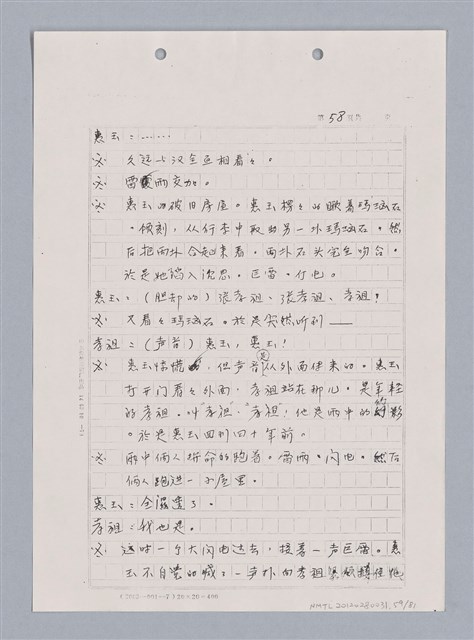 第58頁
惠玉：……
※ 久遠与汉全互相看々。
※ 雷雨交加。
※ 惠玉的破旧房屋。惠玉楞々的瞅着瑪瑙石
。倾刻，从行李中取出另一块瑪瑙石。然
后把两块合起来看，两块石头完全吻合。
於是她陷入沈思。巨雷。闪电。
惠玉：（胆却的）张孝祖、张孝祖、孝祖！
※ 又看々瑪瑙石。於是突然听到——
孝祖：（声音）惠玉，惠玉！
※ 惠玉惊慌，但声音是从外面传来的。惠玉
打开门看々外面，孝祖站在那儿。是年轻
的孝祖。叫孝祖“孝祖！他是雨中的影
。於是惠玉回到四十年前。
※ 雨中俩人拼命的跑着。雷雨。闪电。然后
俩人跑进一小屋里。
惠玉：全濕透了。
孝祖：我也是。
※ 这时一个大闪电过去，接着一声巨雷。惠
玉不自觉的喊了一声扑向孝祖
(2012-001-7)20×20=400
NMTL 20120280031, 59/81